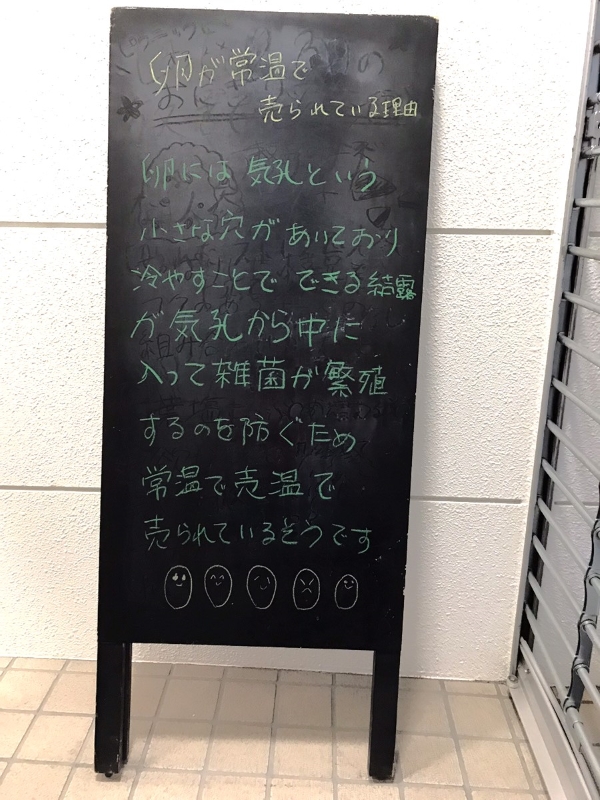 卵が常温で
売られている理由
卵には気孔という
小さな穴があいており
冷やすことでできる結露
が気孔から中に
入って雑菌が繁殖
するのを防ぐため
常温で売温で
売られているそうです